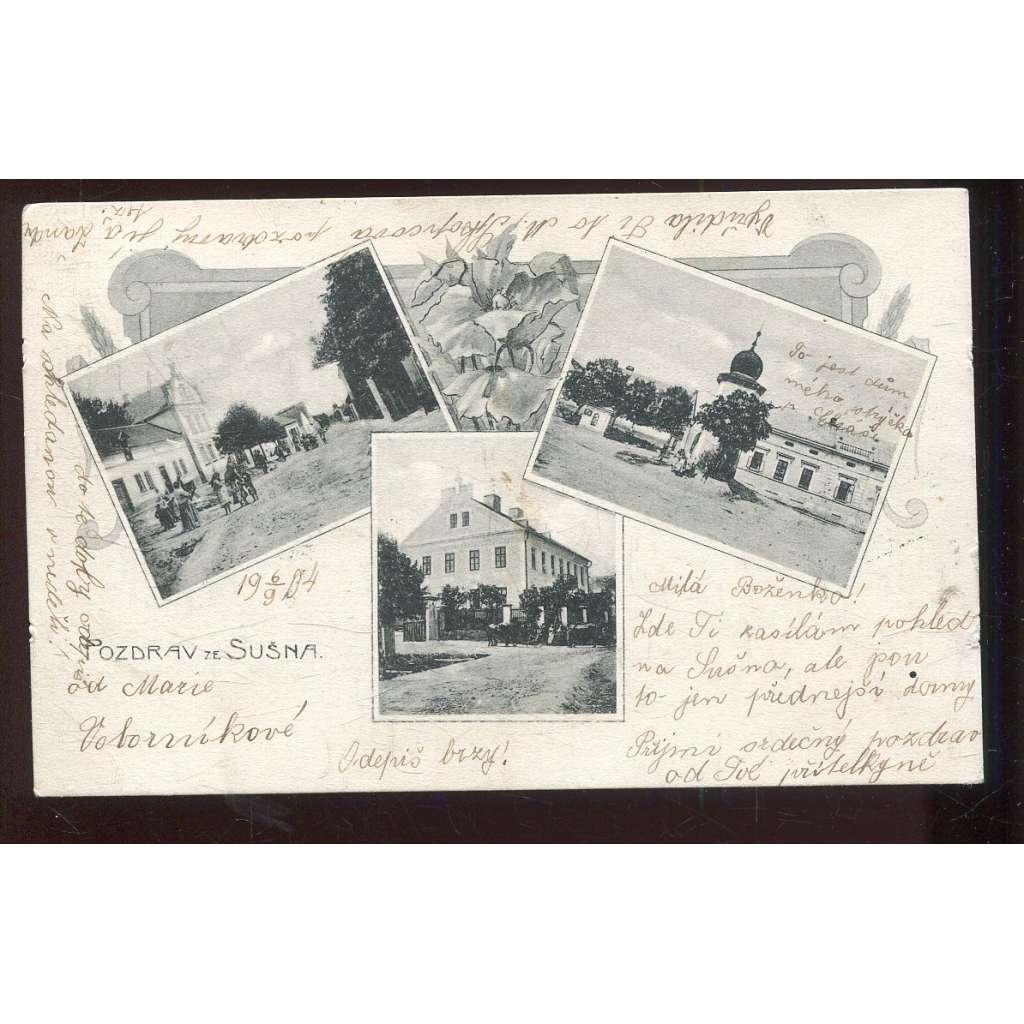 Vyřídila Ti to M. pozdravy, já
To jest dům
mého strýčka
19 6/9 04
POZDRAV ZE SUŠNA.
Milá Boženko!
Zde Ti zasílám pohled
na Sušno, ale pou
to jen přednejsí domy
Přijmi srdečný pozdrav
od Tvé přítelkyně
od Marie
Voborníkové
Odepiš brzy!
Na shledanou v neděli!
do té doby